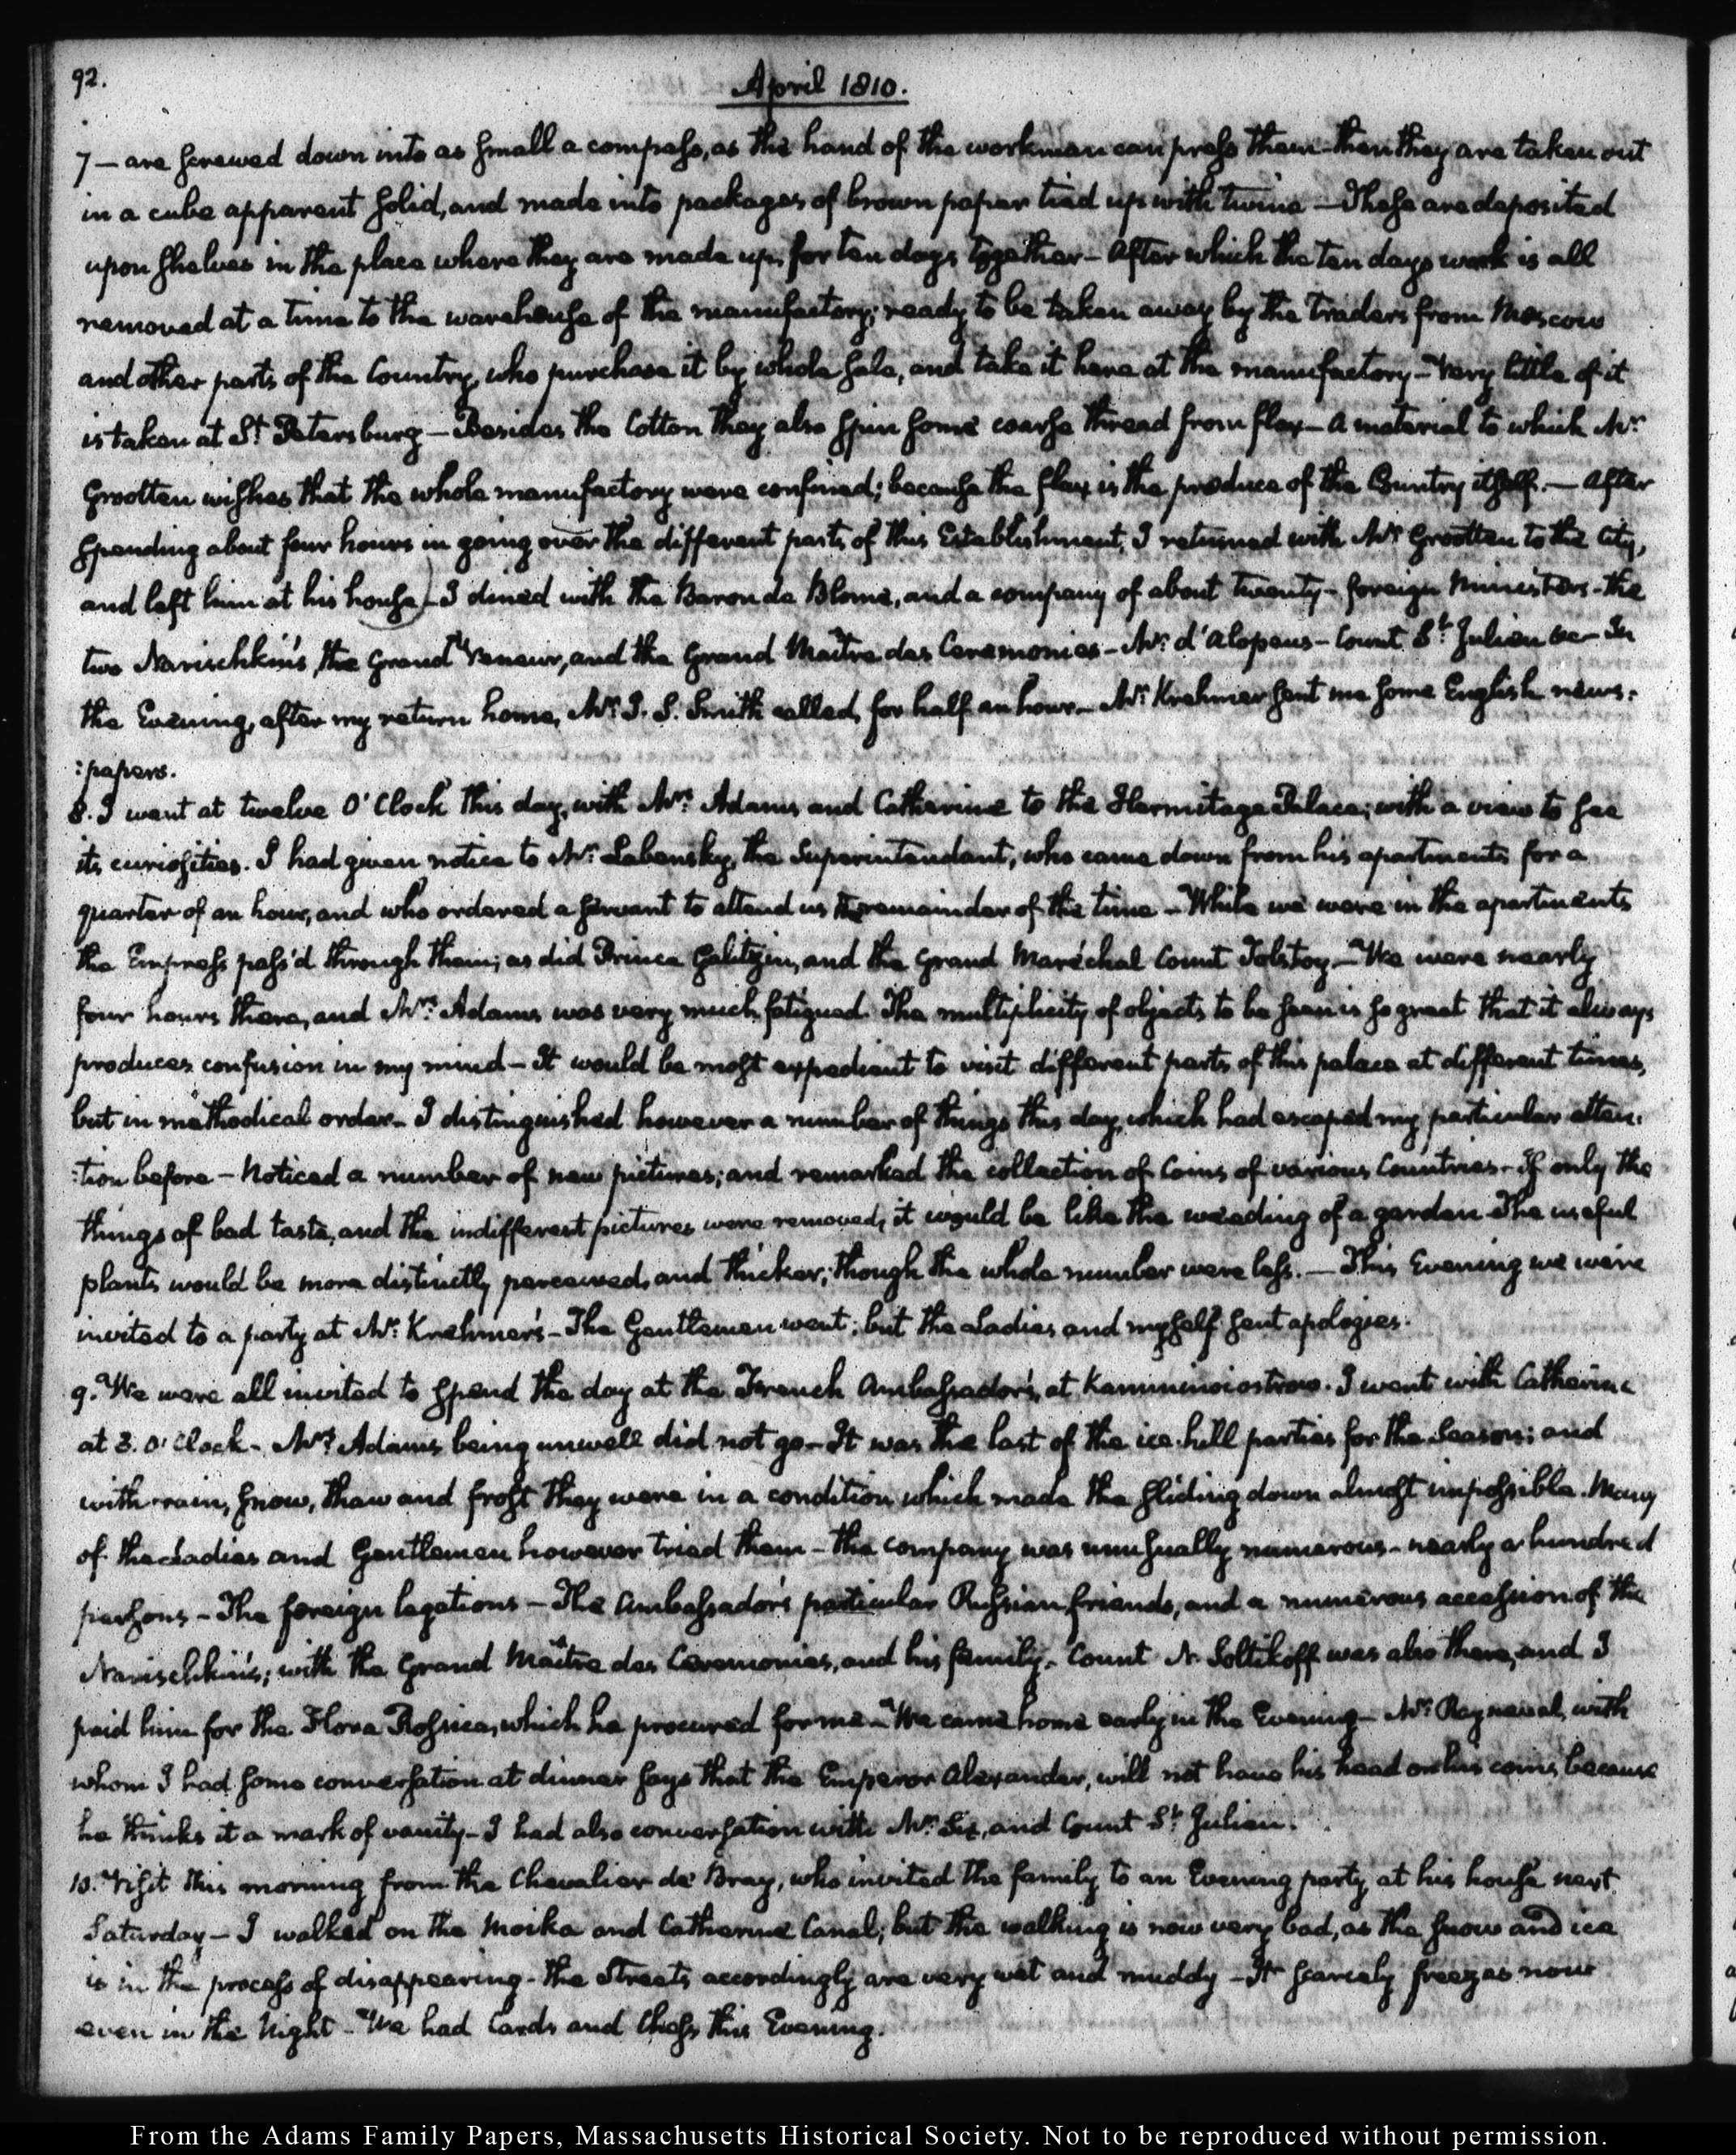 92.
April 1810.
7 — are screwed down into as small a compass, as the hand of the workman can press them then they are taken out
in a cube apparent solid, and made into packages of brown paper tied up with twine — These are deposited
upon shelves in the place where they are made up, for ten days together - After which the ten days work is all
removed at a time to the warehouse of the manufactory; ready to be taken away by the traders from Moscow
and other parts of the Country, who purchase it by whole sale, and take it here at the manufactory — Very little of it
is taken at St. Petersburg — Besides the Cotton they also spin some coarse thread from flax — A material to which Mr.
Grootten wishes that the whole manufactory were confined; because the flax is the produce of the Country itself. — After
spending about four hours in going over the different parts of this Establishment, I returned with Mr. Grootten to the City,
and left him at his house — I dined with the Baron de Blome, and a company of about twenty — foreign Ministers - the
two Narischkin's, the Grand Veneur, and the Grand Maître des Ceremonies — Mr. d'Alopeus — Count St. Julien &c — In
the Evening, after my return home, Mr. J. S. Smith called, for half an hour — Mr. Krehmer sent me some English news:
:papers.
8. I went at twelve O'Clock this day, with Mrs. Adams and Catherine to the Hermitage Palace; with a view to see
its curiosities. I had given notice to Mr. Labensky, the Superintendant, who came down from his apartments for a
quarter of an hour, and who ordered a servant to attend us the remainder of the time — While we were in the apartments
the Empress pass'd through them; as did Prince Galitzin, and the Grand Maréchal Count Tolstoy — We were nearly
four hours there, and Mrs. Adams was very much fatigued. The multiplicity of objects to be seen is so great that it always
produces confusion in my mind — It would be most expedient to visit different parts of this palace at different times,
but in methodical order — I distinguished however a number of things this day, which had escaped my particular atten:
:tion before — Noticed a number of new pictures; and remarked the collection of Coins of various Countries — If only the
things of bad taste, and the indifferent pictures were removed, it would be like the weeding of a garden — The useful
plants would be more distinctly perceived, and thicker; though the whole number were less. — This Evening we were
invited to a party at Mr. Krehmer's — The Gentlemen went; but the Ladies and myself sent apologies.
9. We were all invited to spend the day at the French Ambassador's, at Kamminoiostrow. I went with Catherine
at 3. O'Clock — Mrs. Adams being unwell did not go — It was the last of the ice-hill parties for the Season; and
with rain, snow, thaw and frost they were in a condition which made the sliding down almost impossible. Many
of the Ladies and Gentlemen however tried them — the company was unusually numerous — nearly a hundred
persons — The foreign legations — The Ambassador's particular Russian friends, and a numerous accession of the
Narischkin's; with the Grand Maître des Ceremonies, and his family. Count N. Soltikoff was also there, and I
paid him for the Flora Rossica, which he procured for me — We came home early in the Evening — Mr. Rayneval, with
whom I had some conversation at dinner says that the Emperor Alexander, will not have his head on his coins, because
he thinks it a mark of vanity — I had also conversation with Mr. Six, and Count St. Julien.
10. Visit this morning from the Chevalier de Bray, who invited the family to an Evening party at his house next
Saturday — I walked on the Moika and Catherine Canal; but the walking is now very bad, as the snow and ice
is in the process of disappearing — the Streets accordingly are very wet and muddy — It scarcely freezes now
even in the Night — We had Cards and Chess this Evening.
From the Adams Family Papers, Massachusetts Historical Society. Not to be reproduced without permission.